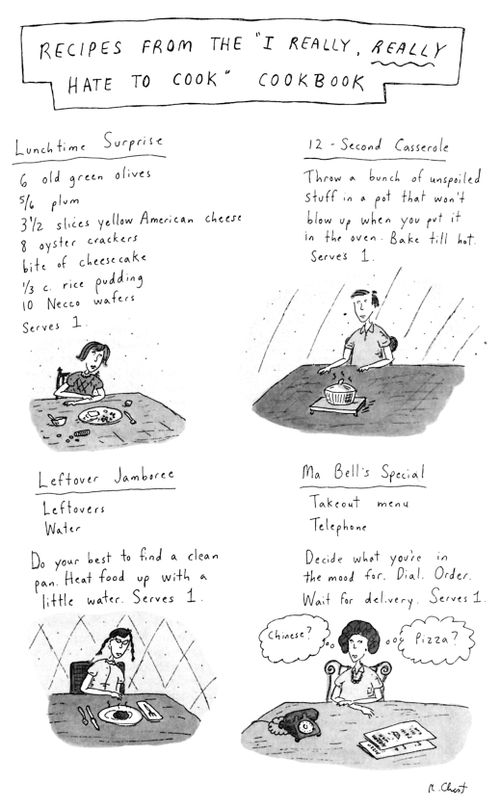 RECIPES FROM THE "I REALLY, REALLY
HATE TO COOK" COOKBOOK
Lunchtime Surprise
6 old green olives
5/6 plum
3 1/2 slices yellow American cheese
8 oyster crackers
bite of cheesecake
1/3 c. rice pudding
10 Necco wafers
Serves 1.
12-Second Casserole
Throw a bunch of unspoiled
stuff in a pot that won't
blow up when you put it
in the oven. Bake till hot.
Serves 1.
Leftover Jamboree
Leftovers
Water
Do your best to find a clean
pan. Heat food up with a
little water. Serves 1.
Ma Bell's Special
Takeout menu
Telephone
Decide what you're in
the mood for. Dial. Order.
Wait for delivery. Serves 1.
Chinese?
Pizza?
R. Chast